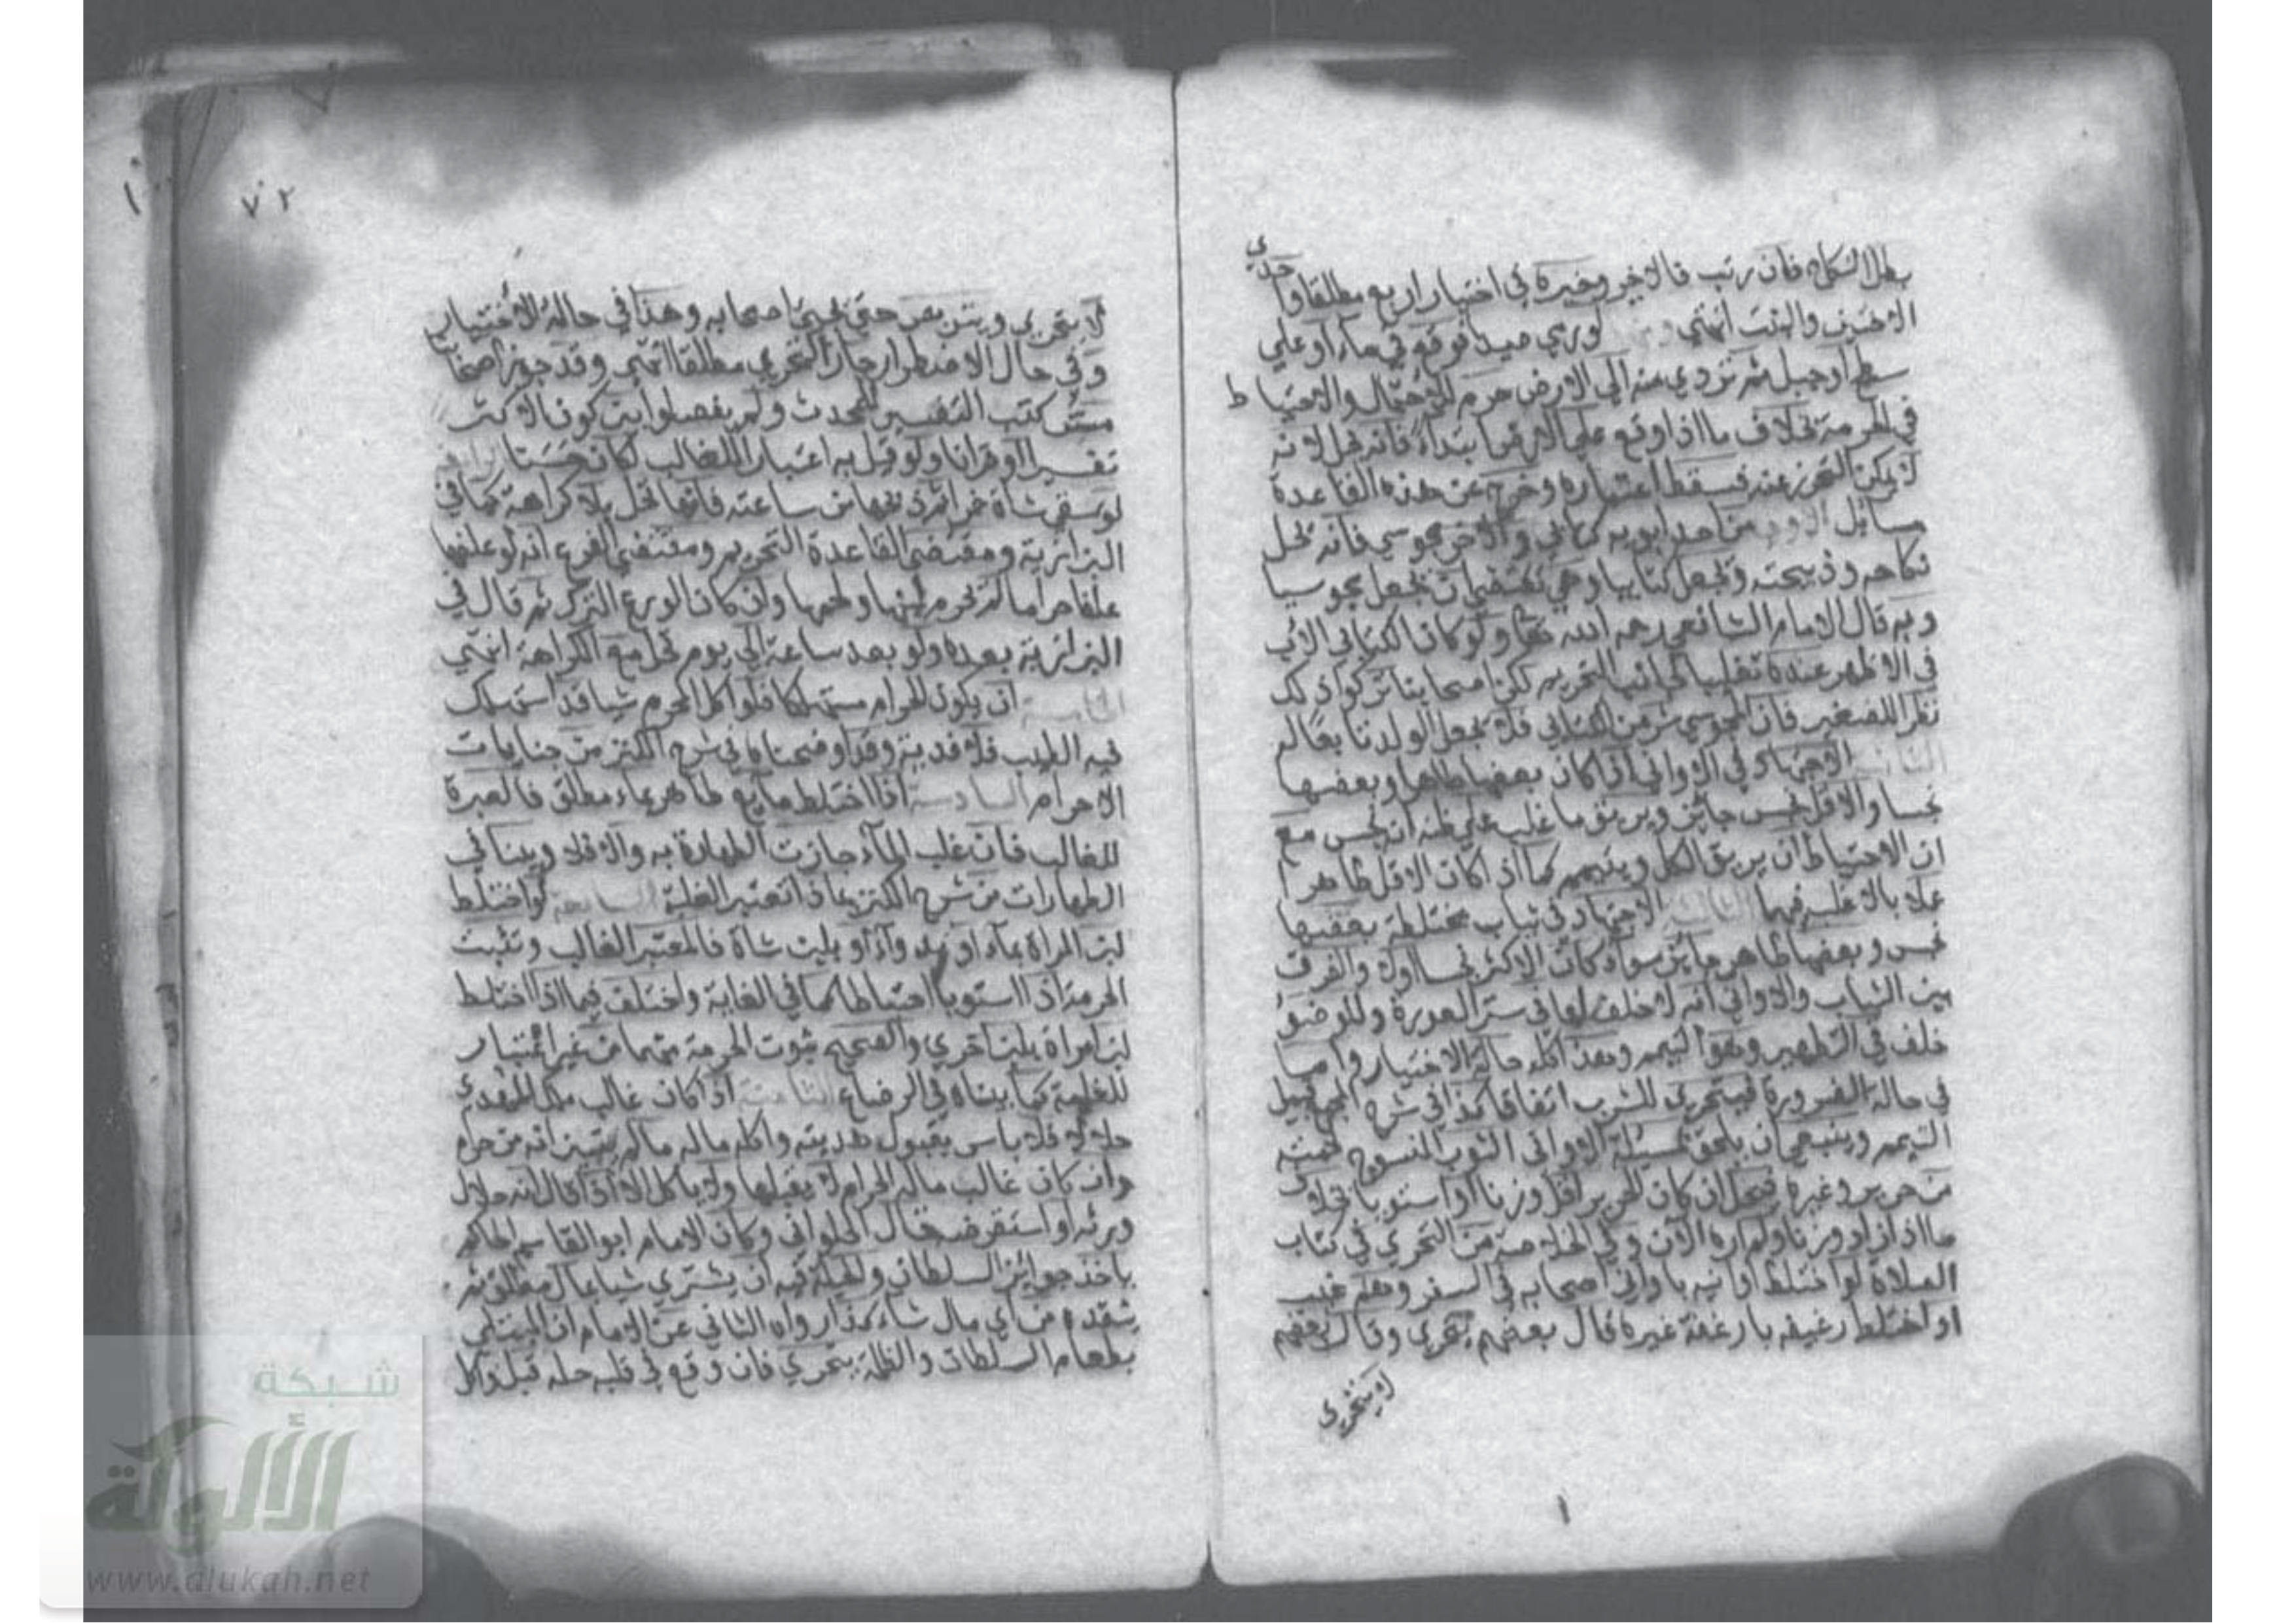 بطل النكاح فان رتب فالاخير وخيره في اختيار اربع مطلقا واحدي
الاختين والبنت انتهي لو رمي صيدا فوقع في ماء او علي
سطح او جبل ثم تردي منه الي الارض حرم للاحتمال والاحتياط
في الحرمة بخلاف ما اذا وقع علي الارض ابتداء فانه يحل لانه
لا يمكن التحرز عنه فسقط اعتباره وخرج عن هذه القاعدة
مسائل الاولي من احد ابويه كتابي والاخر مجوسي فانه تحل
نكاحه وذبيحته ويجعل كتابيا وهي تقتضي ان يجعل مجوسيا
وبه قال الامام الشافعي رحمه الله تعا ولو كان الكتابي الاب
في الاظهر عنده تغليبا لجانب التحريم لكن اصحابنا تركوا ذلك
نظرا للصغير فان المجوسي شر من الكتابي فلا يجعل الولد تابعا له
الثانية الاجتهاد في الاواني اذا كان بعضها طاهرا وبعضها
نجسا والاقل نجس جائز ويريق ما غلب علي ظنه انه نجس مع
ان الاحتياط ان يريق الكل ويتيمم كما اذا كان الاقل طاهرا
عملا بالاغلب فيهما الثالثة الاجتهاد في ثياب مختلطة بعضها
نجس وبعضها طاهر جايز سواء كان الاكثر نجسا اولا والفرق
بين الثياب والاواني انه لا خلف لها في ستر العورة وللوضوء
خلف في التطهير وهو التيمم وهذا كله حالة الاختيار واما
في حالة الضرورة فيتحري للشرب اتفاقا كذا في شرح المجمع قبيل
التيمم وينبغي ان يلحق بمسئلة الاواني الثوب المنسوج لحمته
من حرير وغيره فيحل ان كان الحرير اقل وزنا او استويا بخلاف
ما اذا زاد وزنا ولم اره الآن وفي الخلاصة من التحري في كتاب
الصلاة لو اختلط اوانيه باواني اصحابه في السفر وهم غيب
او اختلط رغيفه بارغفة غيره قال بعضهم يتحري وقال بعضهم
لا يتحري
٧٢
لا يتحري ويتربص حتي يجيئ اصحابه وهذا في حالة الاختيار
وفي حال الاضطرار جاز التحري مطلقا انتهي وقد جوز اصحابنا
مس كتب التفسير للمحدث ولم يفصلوا بين كون الاكثر
تفسيرا او قرانا ولو قيل به اعتبارا للغالب لكان حسنا الرابعة
لو سقي شاة خمرا ثم ذبحها من ساعته فانها تحل بلا كراهة كما في
البزازية ومقتضي القاعدة التحريم ومقتضي الفرع انه لو علفها
علفا حراما لم تحرم لبنها ولحمها وان كان الورع الترك ثم قال في
البزازية بعده ولو بعد ساعة الي يوم تحل مع الكراهة انتهي
الخامسة ان يكون الحرام مستهلكا فلو اكل المحرم شيا قد استهلك
فيه الطيب فلا فدية وقد اوضحناه في شرح الكنز من جنايات
الاحرام السادسة اذا اختلط مايع طاهر بماء مطلق فالعبرة
للغالب فان غلب الماء جازت الطهارة به والا فلا وبينا في
الطهارات من شرح الكنز بماذا تعتبر الغلبة السابعة لو اختلط
لبن المراة بماء او بدواء او بلبن شاة فالمعتبر الغالب وتثبت
الحرمة اذا استويا احتياطا كما في الغاية واختلف فيما اذا اختلط
لبن امراة بلبن اخري والصحيح ثبوت الحرمة منهما من غير اعتبار
للغلبة كما بيناه في الرضاع الثامنة اذا كان غالب مال المهدي
حلالا فلا باس بقبول هديته واكل ماله ما لم يتبين انه من حرام
وان كان غالب ماله الحرام لا يقبلها ولا ياكل الا اذا قال انه حلال
ورثه او استقرضه قال الحلواني وكان الامام ابو القاسم الحاكم
ياخذ جوايز السلطان والحيلة فيه ان يشتري شيا بمال مطلق ثم
ينقده من اي مال شاء كذا رواه الثاني عن الامام ان المبتلي
بطعام السلطان والظلمة يتحري فان وقع في قلبه حله قبل واكل
شبكة
الألوكة
www.alukah.net